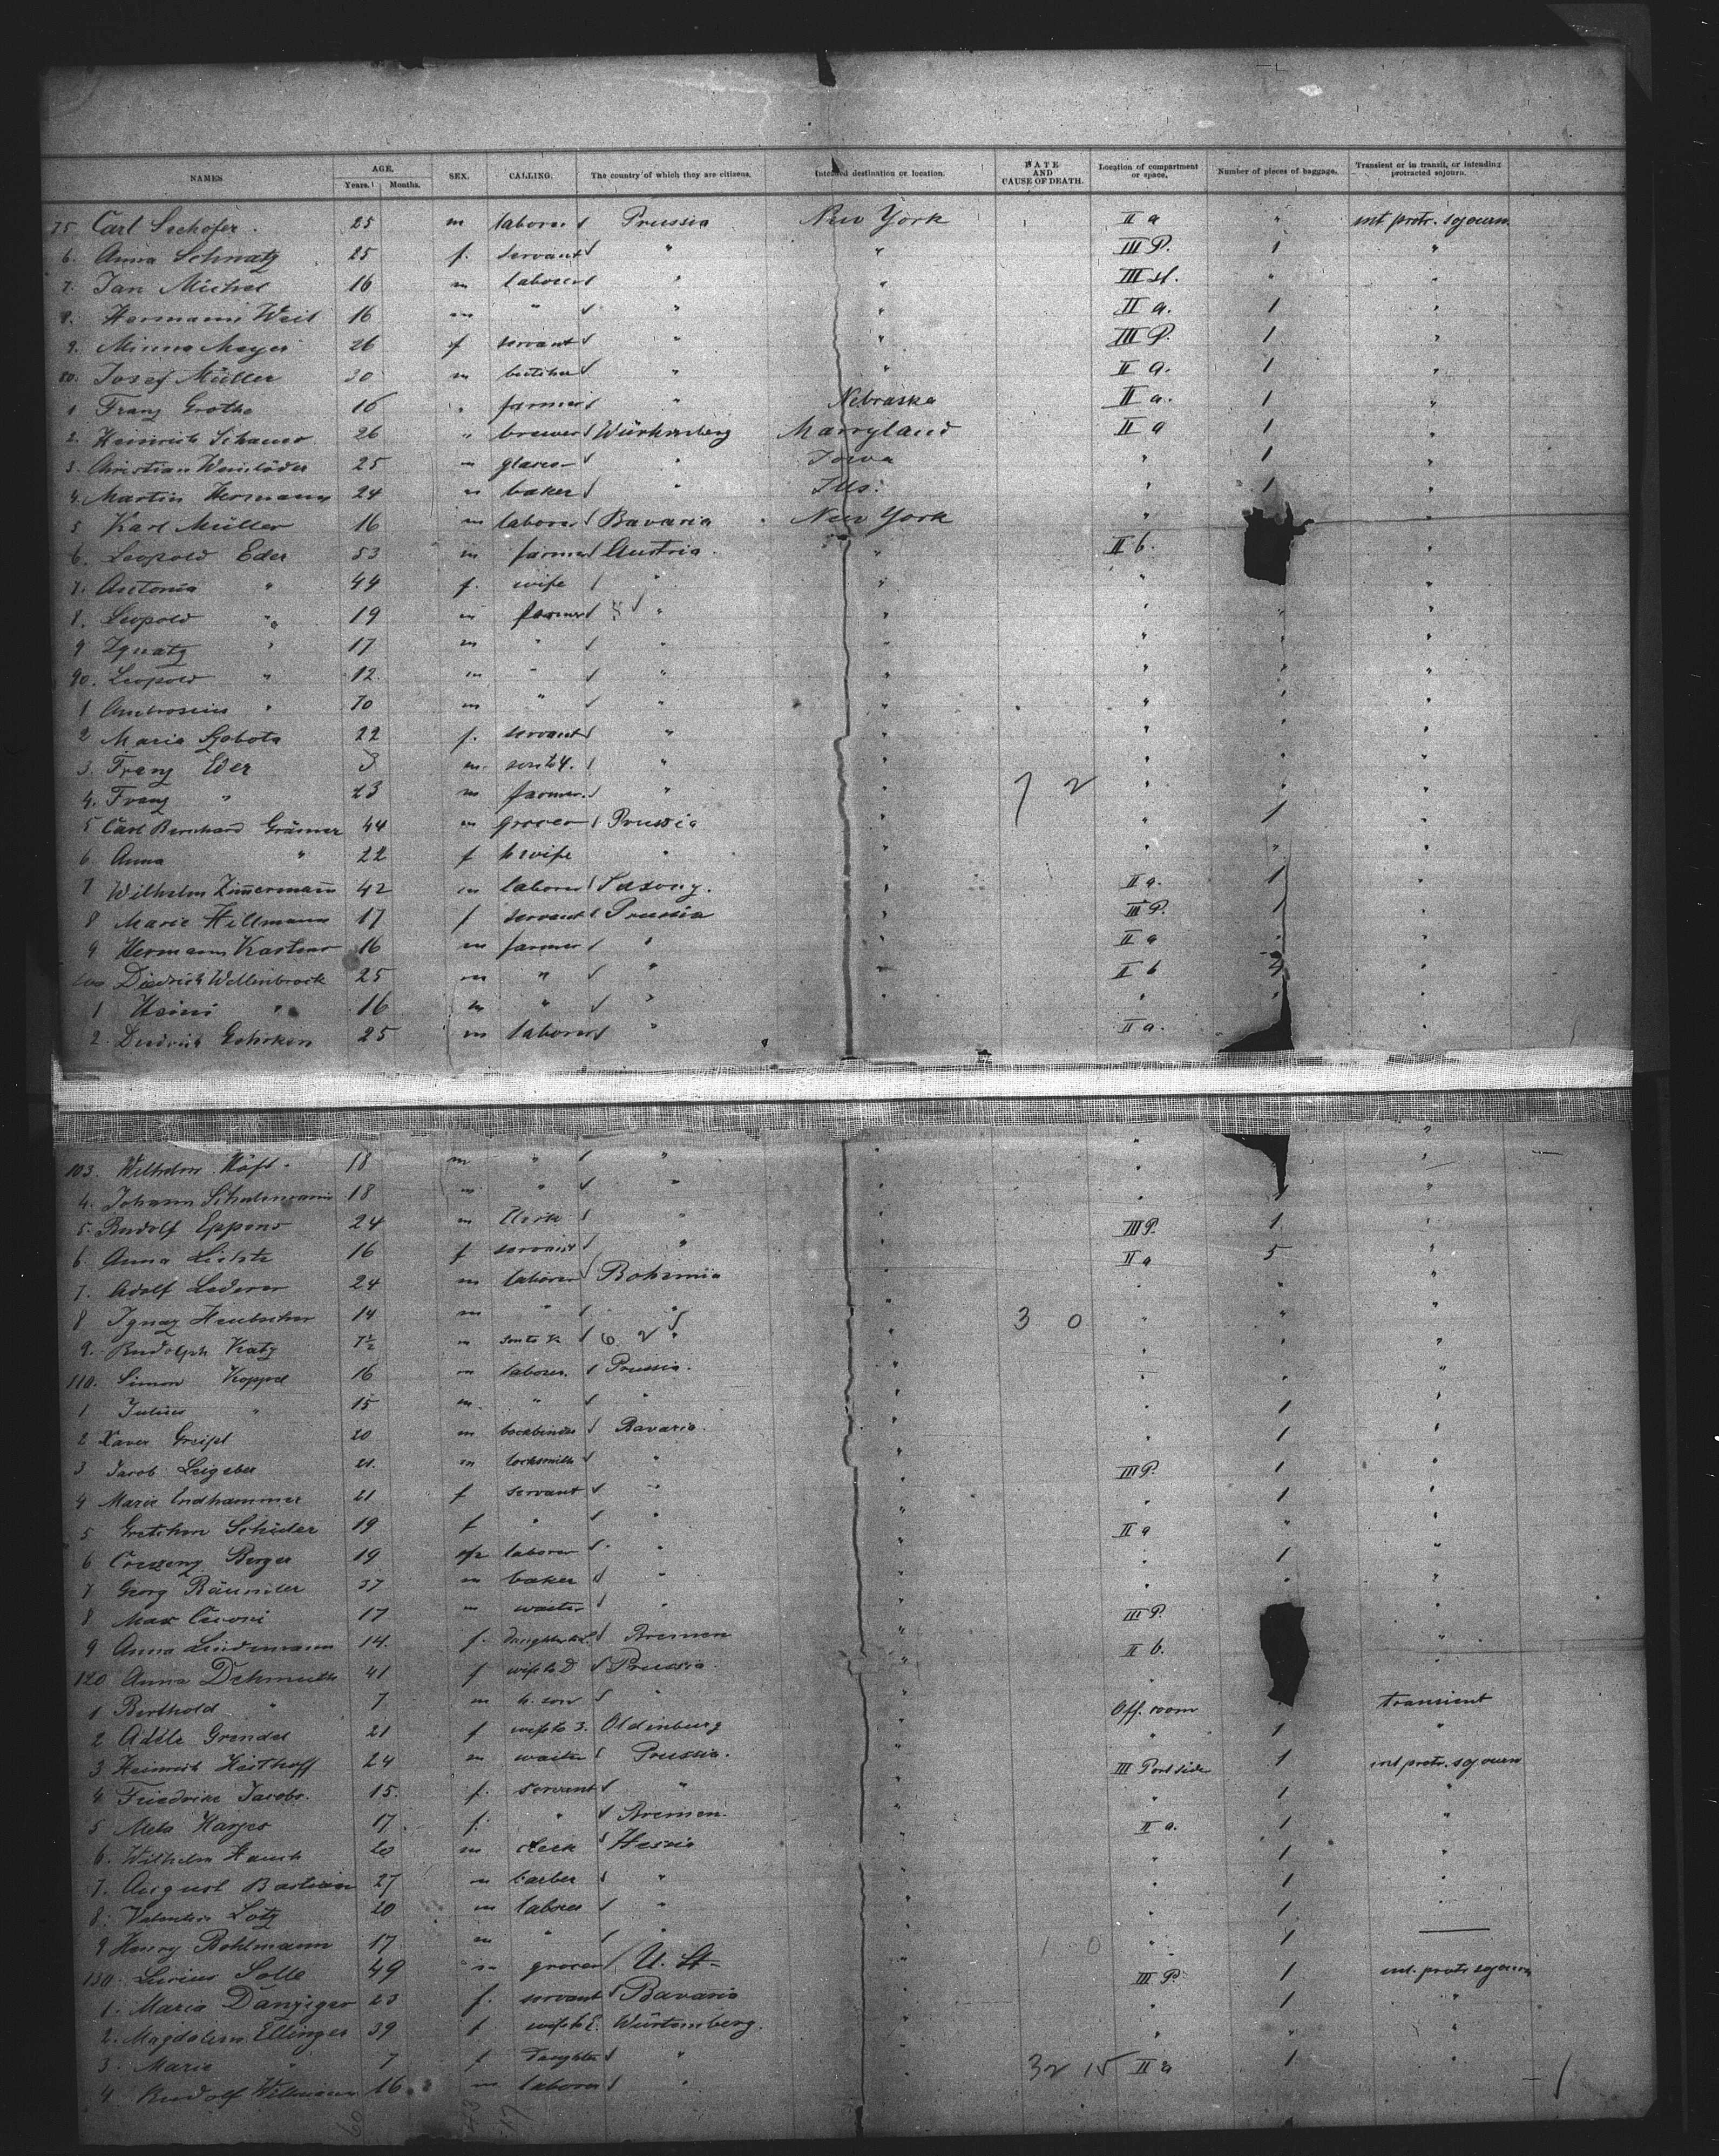 NAMES AGE. Years. Months. SEX. CALLING. The country of which they are citizens. Intended destination or location. DATE AND CAUSE OF DEATH. Location of compartment or space. Number of pieces of baggage. Transient or in transit, or intending protracted sojourn.
75 Carl Seehofer 25 m laborer Prussia New York II a " int protr. sojourn
6. Anna Schnatz 25 f. servant " " III P. 1 "
7. Jan Michel 16 m laborer " " III st. " "
8. Hermann Weil 16 m " " " II a. 1 "
9. Minna Meyer 26 f servant " " III P. 1 "
80. Josef Müller 30 m butcher " " II a. 1 "
1 Franz Grothe 16 " farmer " Nebraska II a. 1 "
2. Heinrich Schauer 26 " brewer Würtemberg Marryland II a 1 "
3. Christian 25 m " Iowa " 1 "
4. Martin Hermann 24 m baker " Ills. " 1 "
5 Karl Müller 16 m laborer Bavaria New York " "
6. Leopold Eder 53 m farmer Austria " II b. "
7. Antonia " 44 f. wife " " " "
8. Leopold " 19 m farmer " " " " "
9 Ignatz " 17 m " " " " " "
90. Leopold " 12 m " " " " " "
1 Ambrosius " 10 m " " " " " "
2 Maria 22 f. servant " " " " "
3. Franz Eder 3 m. " " " " "
4. Franz " 23 m farmer " " 7 2 " " "
5 Carl Bernhard Grämer 44 m grocer Prussia " " 1 "
6 Anna " 22 f h wife " " " " "
7 Wilhelm Zimmermann 42 m laborer Saxony. " II a. 1 "
8 Marie Hillmann 17 f servant Prussia " III P. 1 "
9 Hermann Karstens 16 m farmer " " II a " "
100 Diedrich Wellenbrock 25 m " " " II b "
1 Heini " 16 m " " " " " "
2. Diedrich Gehrken 25 m laborer " II a. "
103. Wilhelm 18 m " " " " "
4. Johann 18 m " " " " 1 "
5. Rudolf Eppens 24 m Clerk " " III P. 1 "
6. Anna 16 f servant " " II a 5 "
7. Adolf Lederer 24 m laborer Bohemia " " " "
8 Ignaz 14 m " " " 3 0 " " "
9. Rudolph Katz m son to K 6 2 " " " " "
110. Simon Koppel 16 m laborer. Prussia. " " " "
1 Julius " 15 m. " " " " 1 "
2 Xaver Greipl 20 m bookbinder Bavaria. " " 1 "
3 Jacob Leigeber 21. m locksmith " " III P. 1 "
4 Marie Endhammer 21 f servant " " " 1 "
5 Gretchen Schider 19 f " " " II a " "
6 Berger 19 laborer " " " 1 "
7 Georg Bäumler 37 m baker " " " " "
8 Max 17 m waiter " " III P. "
9 Anna Lindemann 14. f. Bremen " II b. "
120 Anna Dehmuth 41 f wife to D Prussia. " " "
1 Berthold " 7 m h. son " " Off. room transient
2 Adele Grendel 21 f Oldenburg " " 1 "
3 Heinrich Heithoff 24 m waiter Prussia. " III Portside 1 int protr. sojourn
4 Friedrike Jacobs. 15. f. servant " " " 1 "
5 Meta Harjes 17 f. " Bremen. " II a. 1 "
6. Wilhelm Hauck 20 m clerk Hessia " " 1 "
7. August Bastian 27 m barber " " " 1 "
8. Valentin Lotz 20 m laborer " " " 1 "
9 Henry Bohlmann 17 m " " " 1 0 " 1 —
130. Solle 49 m grocer U. St. " III P. 1 int. protr sojourn
1. Maria Danziger 23 f. servant Bavaria " " 1 "
2. Magdalena Ellinger 39 f wife to E. Würtemberg. " " " "
3. Marie " 7 f daughter " " 32 15 II a 1 "
4 Rudolf 16 m laborer " 1